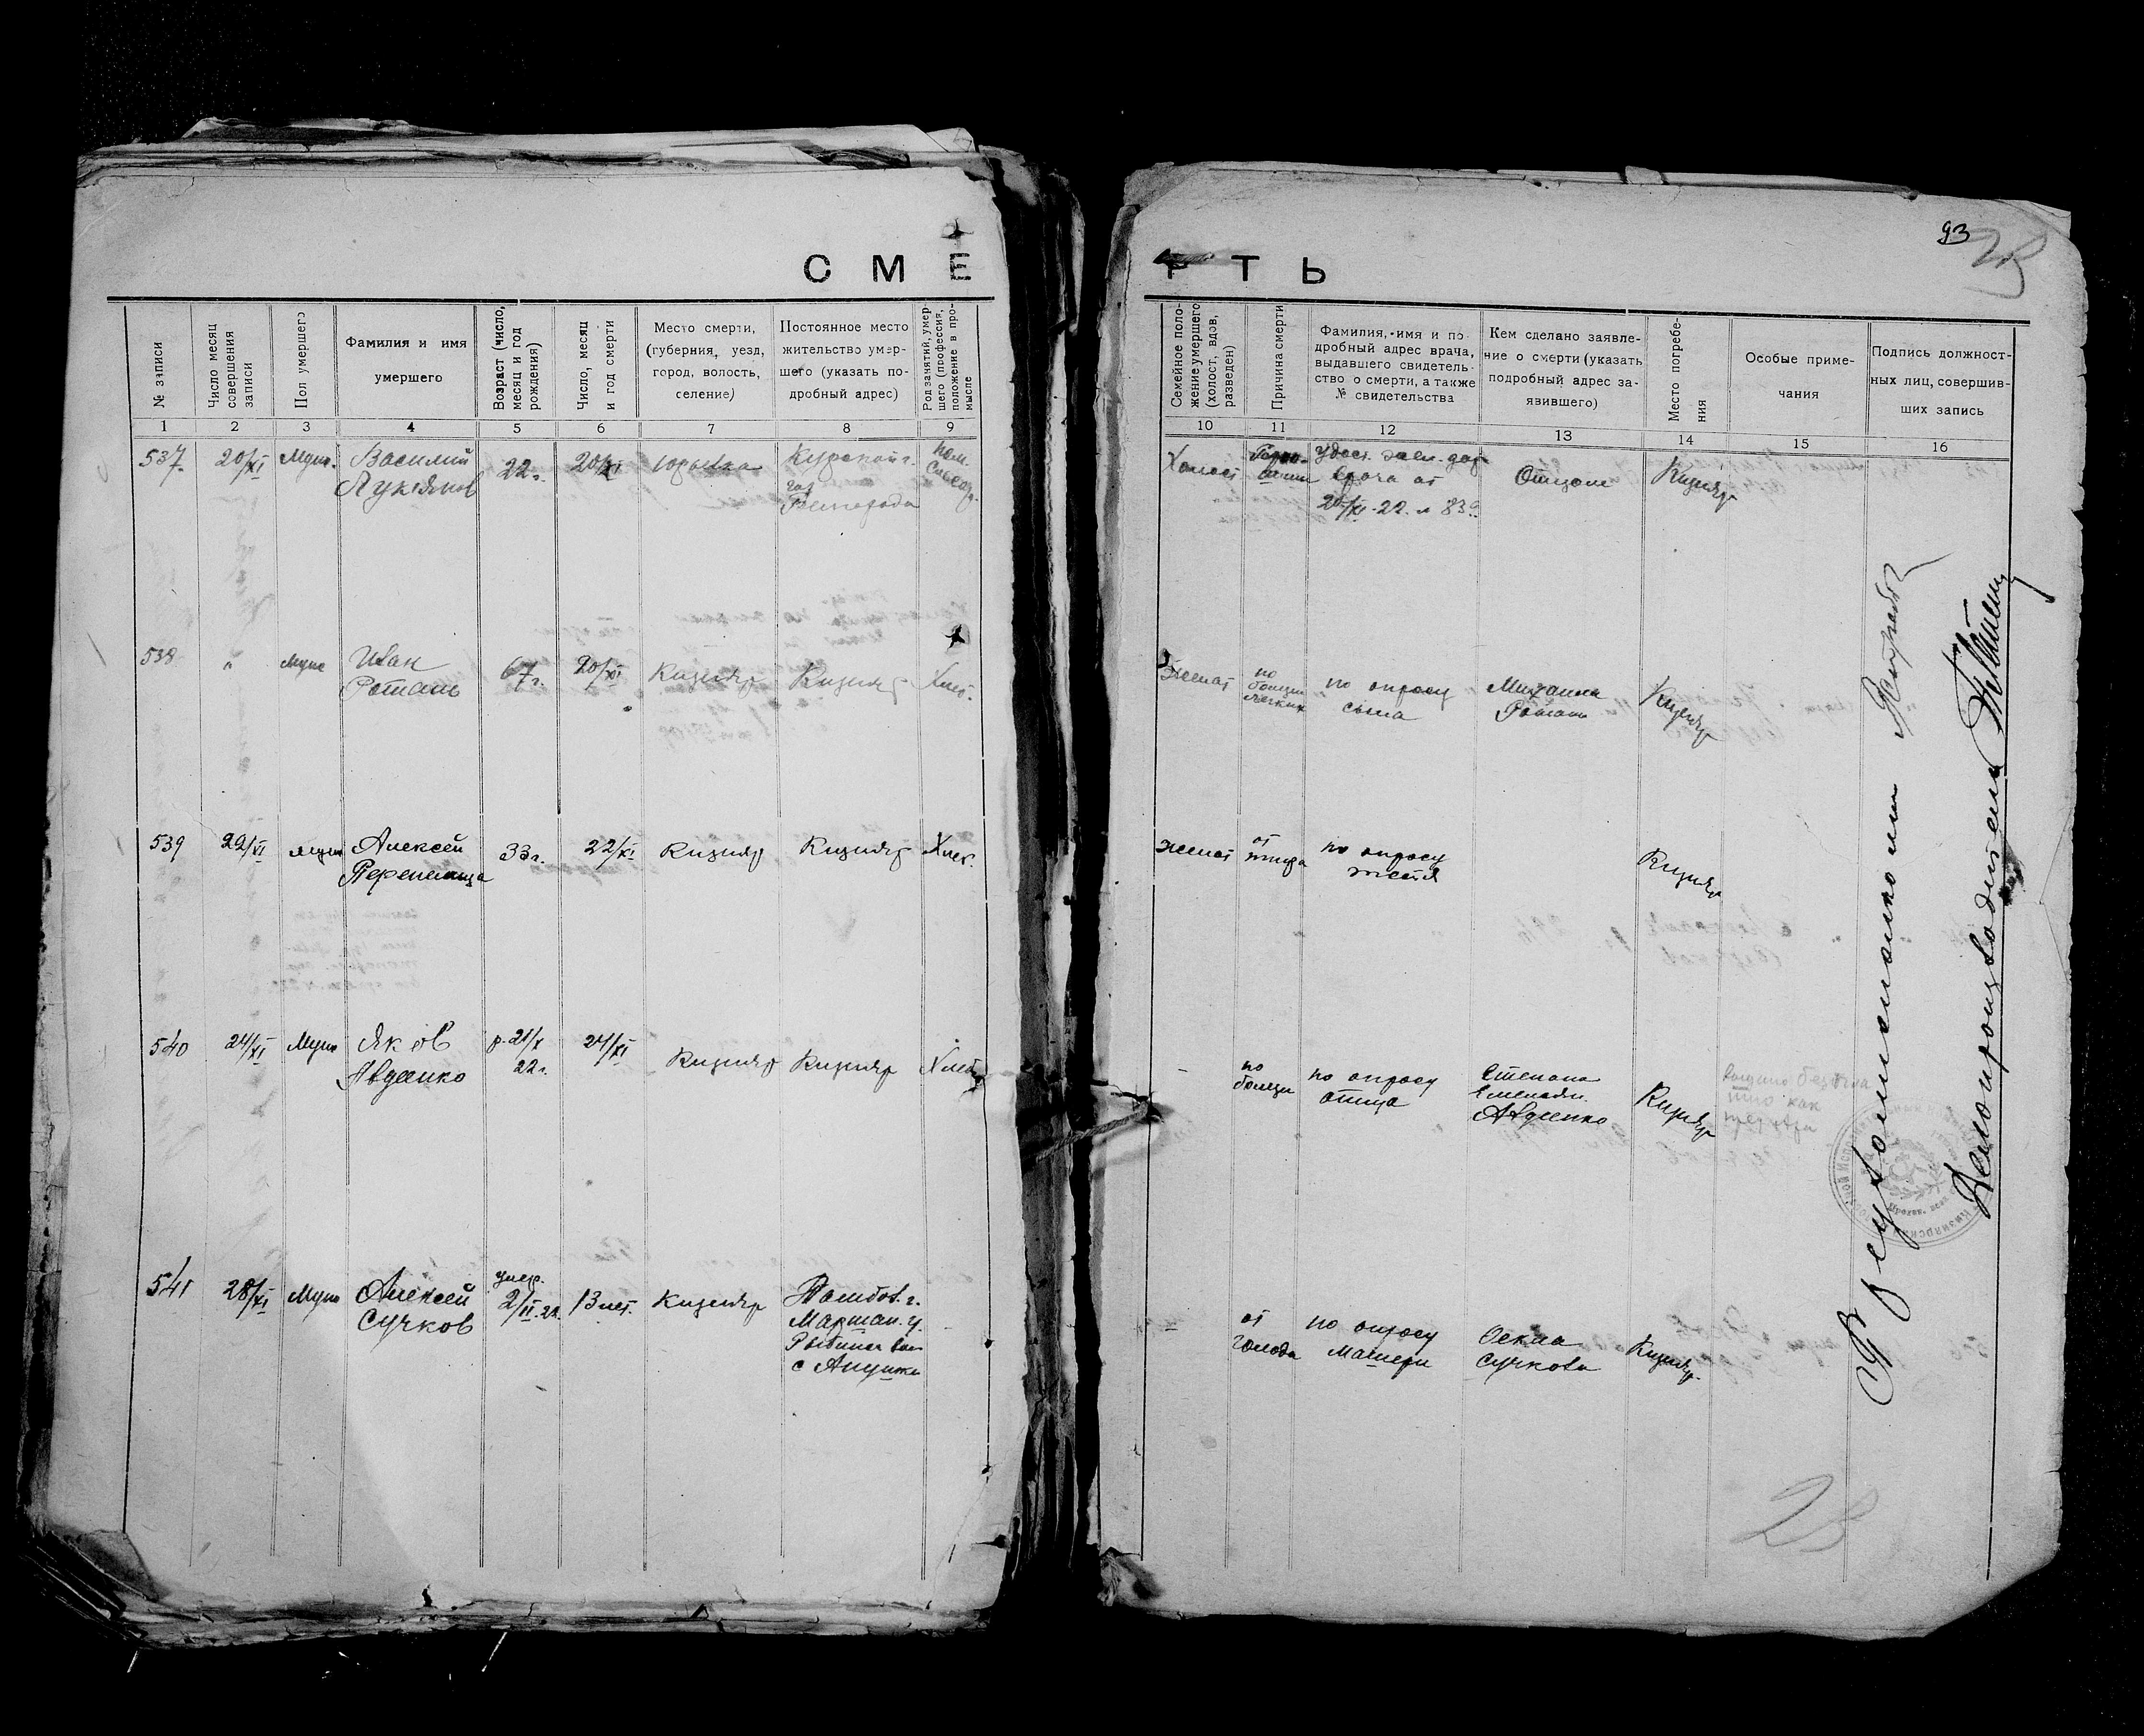 93
28
СМЕРТЬ
№ записи
Число месяц совершения записи
Пол умершего
Фамилия и имя умершего
Возраст (число, месяц и год рождения)
Число, месяц и год смерти
Место смерти, (губерния, уезд, город, волость, селение)
Постоянное место жительство умершего (указать подробный адрес)
Род занятий, умершего (профессия, положение в промысле
Семейное положение умершего (холост, вдов, разведен)
Причина смерти
Фамилия, имя и подробный адрес врача, выдавшего свидетельство о смерти, а также № свидетельства
Кем сделано заявление о смерти (указать подробный адрес заявившего)
Место погребения
Особые примечания
Подпись должностных лиц, совершивших запись
1 2 3 4 5 6 7 8 9 10 11 12 13 14 15 16
537 20/XI Муж. Василий 22 20/XI Курской г.
Лукьянов г.
Холост Удост.
врача от Отцом Кизияр
20/XI-22. № 839
538 " муж Иван 67 г. 20/XI Кизияр Кизияр Хлеб.
Ротань
Женат по болезни легких по опросу сына Михаила Ротань Кизияр
539 22/XI муж Алексей 33 г. 22/XI Кизияр Кизияр Хлеб.
Перепелица
женат от тифа по опросу Кизияр
540 24/XI Муж Яков р. 21/X 22 г. 24/XI Кизияр Кизияр Хлеб
Авдеенко
- по болезни по опросу отца Степана Авдеенко Кизияр
541 28/XI Муж Алексей умер. 2/II-22 13 лет. Кизияр
Сучков
с
от голода по опросу матери Сучкова Кизияр
Делопроизводитель
28